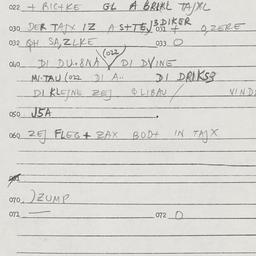 022 + RICHKE GL A BRIKL TAJXL
030 DER TAJX IZ A STTEJBDIKER 031 + O,ZERE
032 QH SA,ZLKE 033 O
(022
040 DI DU.8NA DI DVINE
M.TAU (022 DI A.. DI DRIKS3
DI KLEJNE ZEJ. LIBAU / VIND
050 J5A
060 ZEJ FLEG + ZAX BOD+ IN TAJX
070 )ZUMP
071 — 072 O